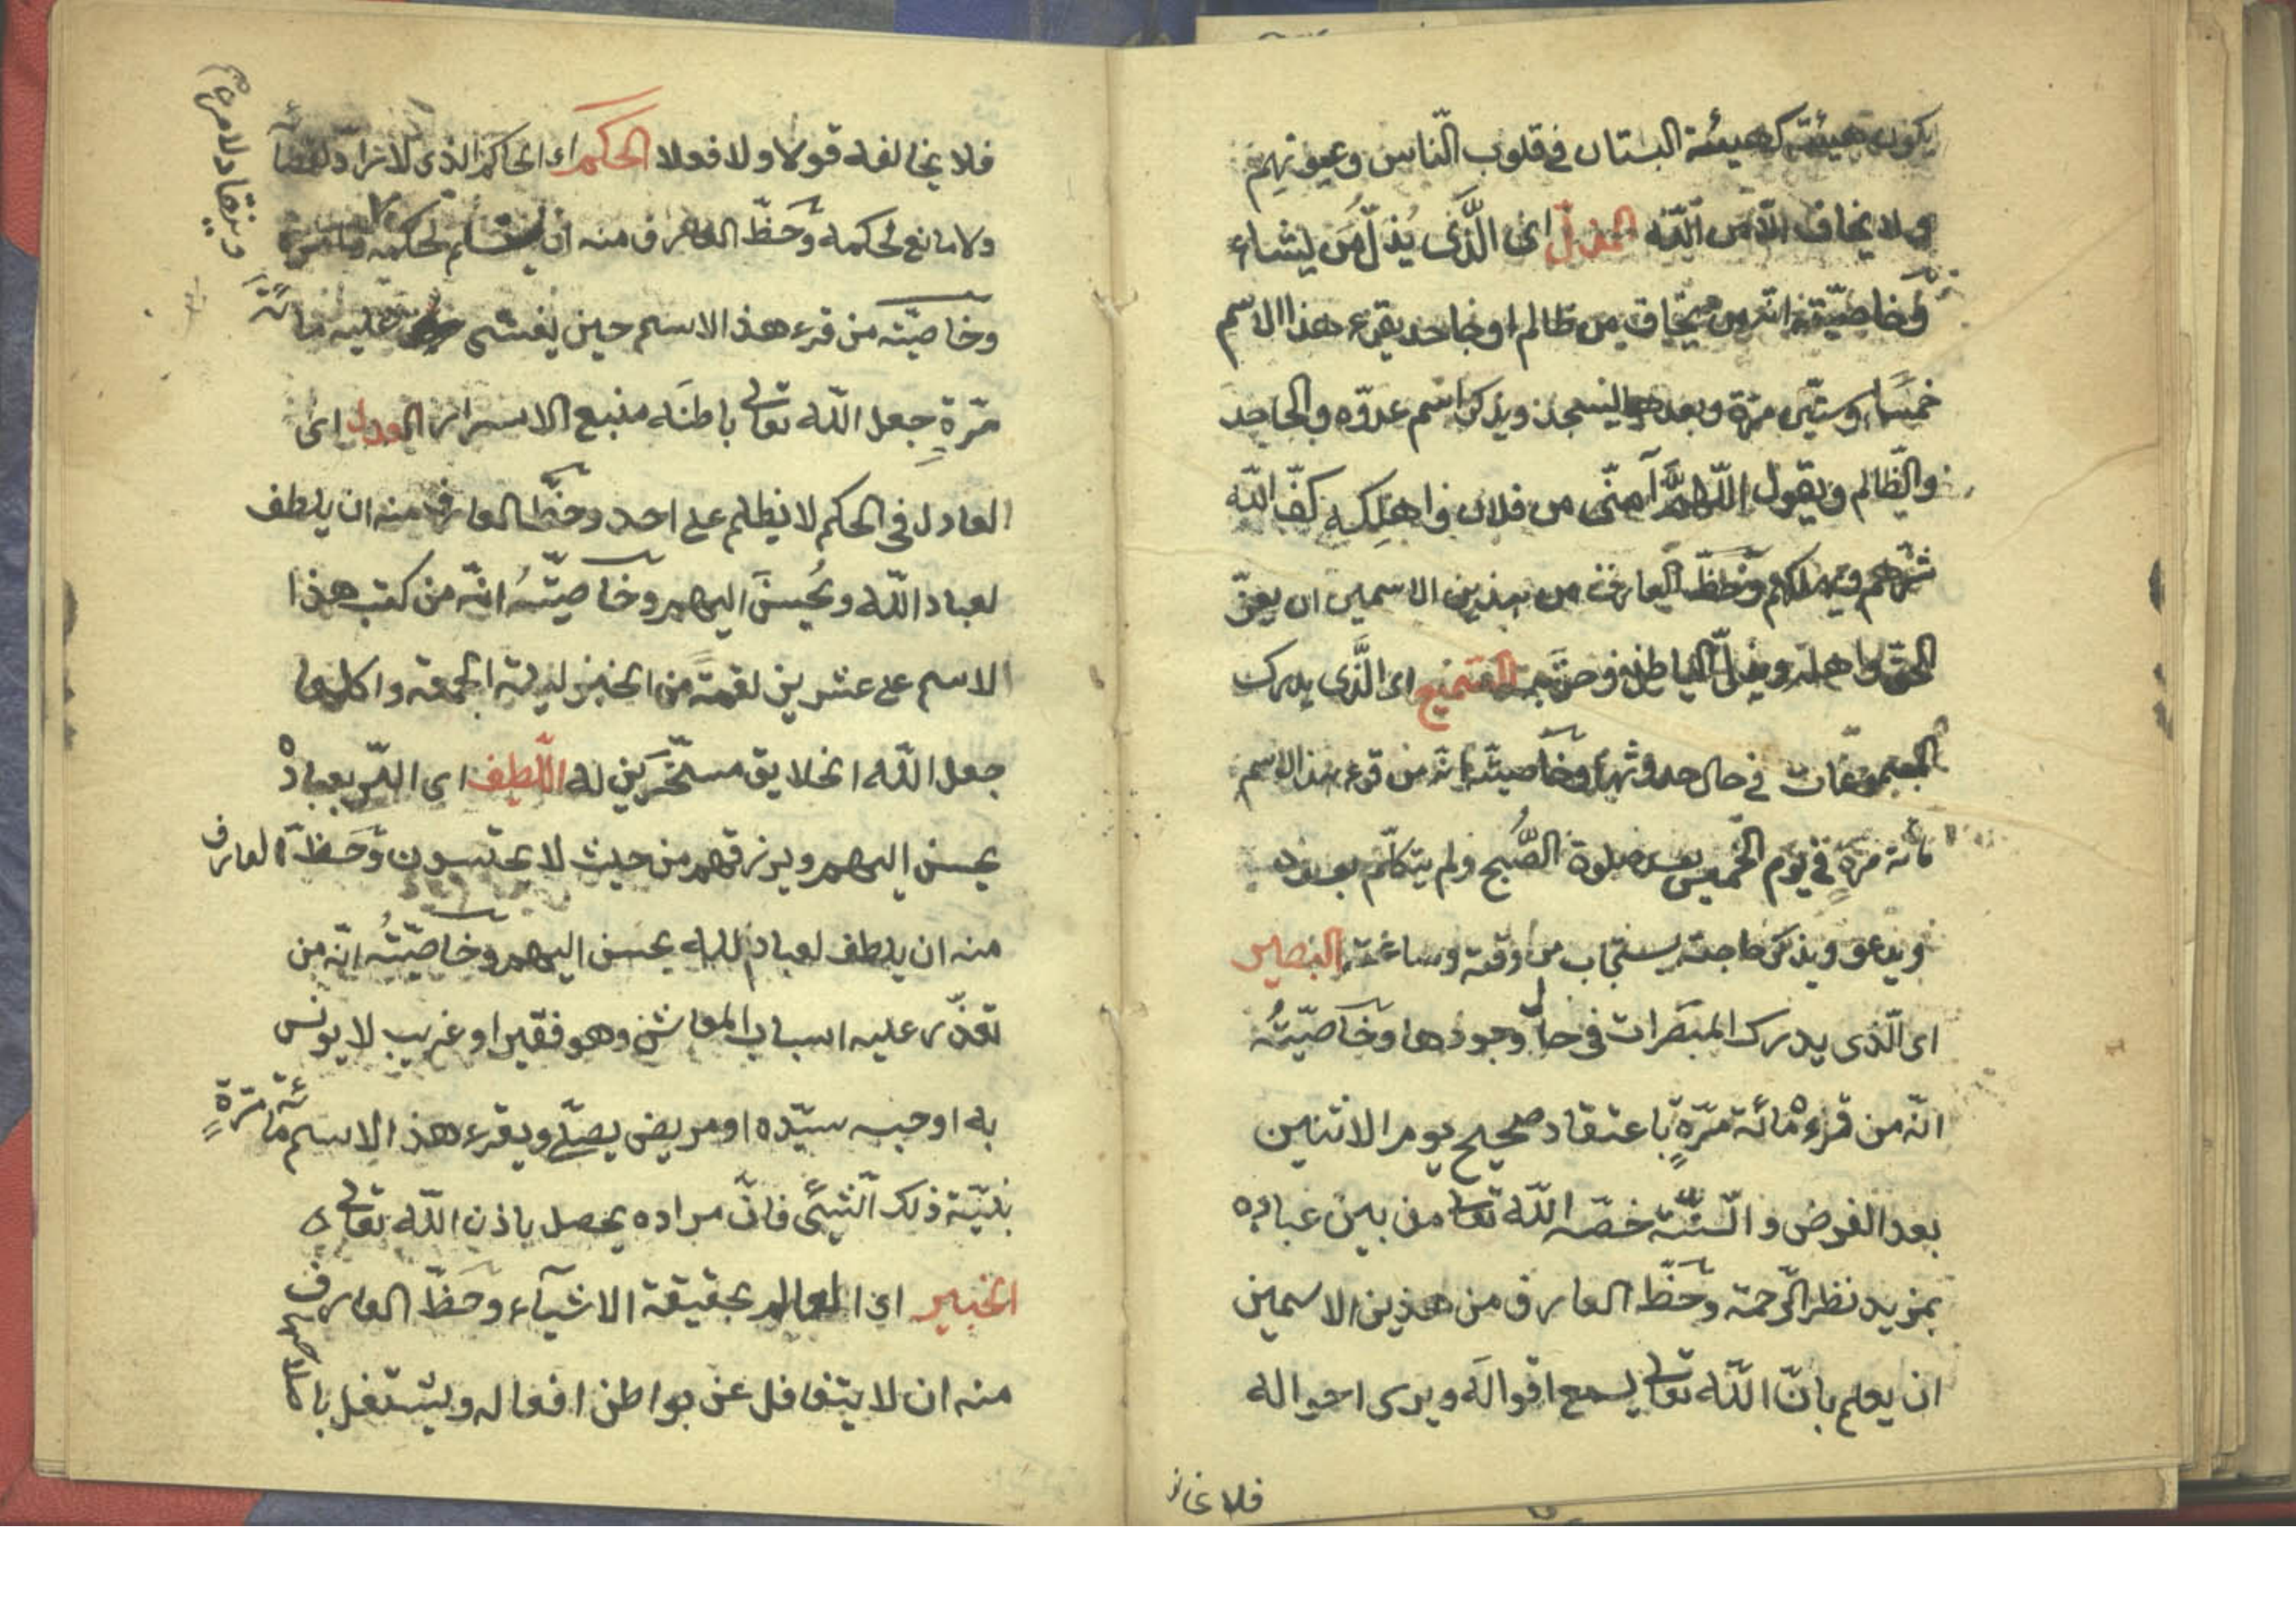 يكون هيئته كهيئة البستان في قلوب النّاس وعيونهم
ولا يخاف الّا من اللّه المذلّ اى الَّذى يُذلّ مَن يشاء
وخاصّيّته انّه من يخاف من ظالم او جاحد يقرء هذا الاسم
خمسًا وستّين مرّة وبعده ليسجد ويذكر اسم عدوّه والجاحد
والظّالم ويقول اللّهمّ آمنّى من فلان واهلكه كفّ اللّه
شرّهم ويهلكهم وحَظّ العارف من هذين الاسمين ان يعزّ
الحقّ واهله ويذلّ الباطل وحزبه السّميع اى الَّذى يدرك
المسموعات في حال حدوثها وخاصيّته انّه من قرء هذا الاسم
مائة مرّةٍ في يوم الخميس بعد صلوة الصُّبح ولم يتكلّم بعده
ويدعو ويذكر حاجته يستجاب من وقته وساعته البصير
اى الّذى يدرك المبصَرات في حال وجودها وخاصّيّتُه
انّه من قرءه مائة مرّةٍ باعتقاد صحيح يوم الاثنين
بعد الفرض والسّنّة خصّه اللّه تعالى من بين عباده
بمزيد نظر الرّحمة وحَظّ العارف من هذين الاسمين
ان يعلم بانّ اللّه تعالى يسمع اقواله ويرى احواله
فلا يخا
فلا يخالفه قولا ولا فعلا الحكم اى الحاكم الذى لا رادّ لقضائه
ولا مانع لحكمه وحَظّ العارف منه ان يستسلم لحكمه
وينقاد لامره
وخاصّيّته من قرء هذا الاسم حين يغشى عليه مائة
مرّةٍ جعل اللّه تعالى باطنَه منبع الاسرار العدل اى
العادل في الحكم لا يظلم على احد وحَظّ العارف منه ان يلطف
لعباد اللّه ويُحسنَ اليهم وخاصيّتُه انّه من كتب هذا
الاسم على عشرين لقمةً من الخبز ليلة الجمعة واكلها
جعل اللّه الخلايق مسخّرَين له اللّطيف اى البرّ بعباده
يحسن اليهم ويرزقهم من حيث لا يحتسبون وحَظّ العارف
منه ان يلطف لعباد اللّه يحسن اليهم وخاصّيّتُه انّه من
تعذّر عليه اسباب المعاش وهو فقير او غريب لا يونس
به او حبسه سيّده او مريض يصلّى ويقرء هذا الاسم مائة مرّةٍ
بنيّة ذلك الشّيئ فانّ مراده يحصل باذن اللّه تعالى
الخبير اى العالم بحقيقة الاشيآء وحَظّ العارف
منه ان لا يتغافل عن بواطن افعاله ويشتغل باصلاحها